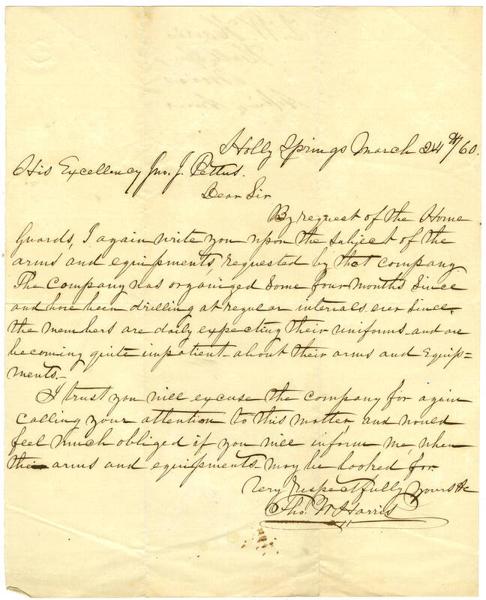 Holly Springs March 24th/60.
His Excellency Jno. J. Pettus.
Dear Sir
By request of the Home
Guards, I again write you upon the subject of the
arms and equipments requested by that company
The Company was organized some four months since
and have been drilling at regular intervals ever since.
the members are daily expecting their uniforms and are
becoming quite impatient about their arms and Equip=
ments.
I trust you will excuse the company for again
calling your attention to this matter and would
feel much obliged if you will inform me when
the arms and equipments may be looked for
Very Respectfully yours &c
Tho. W Harris